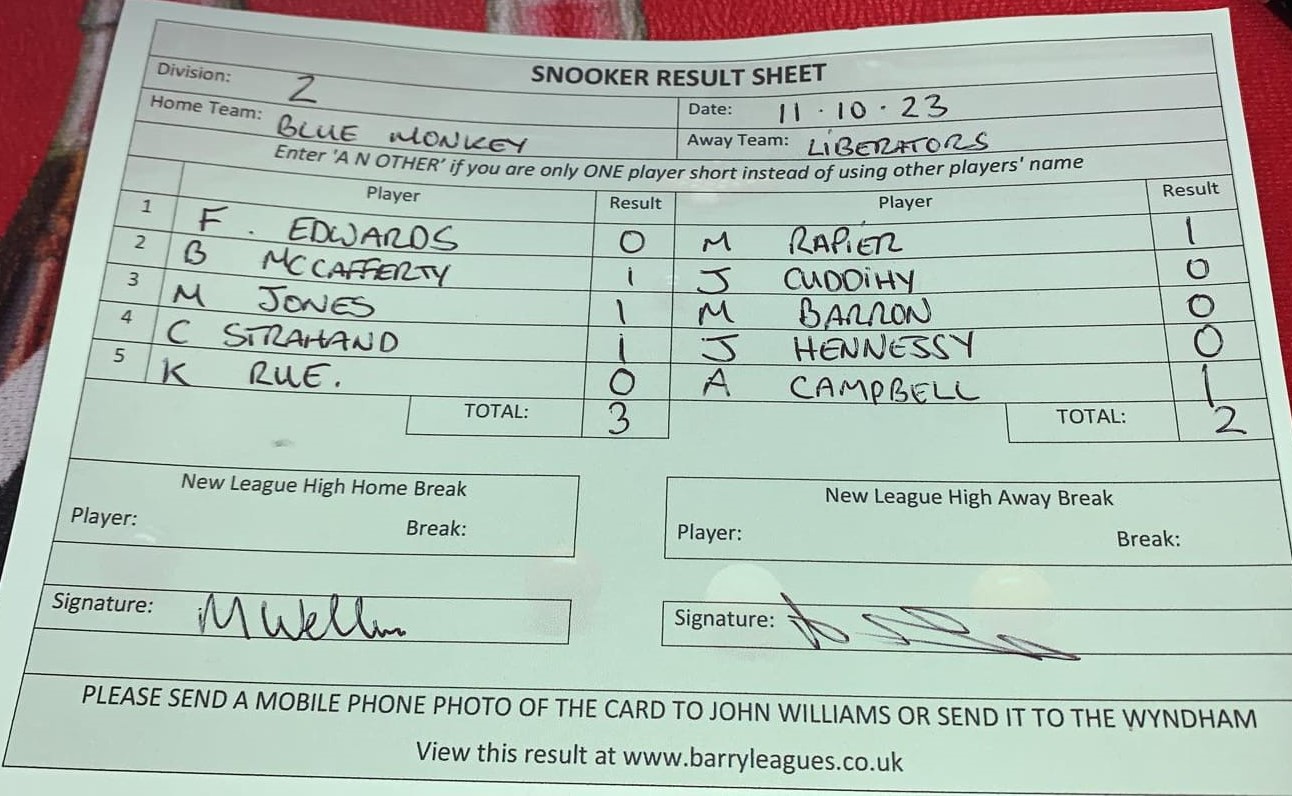 SNOOKER RESULT SHEET
Division: 2
Home Team: BLUE MONKEY Date: 11.10.23
Away Team: LIBERATORS
Enter 'A N OTHER' if you are only ONE player short instead of using other players' name
Player Result Player Result
1 F. EDWARDS 0 M RAPIER 1
2 B MCCAFFERTY 1 J CUDDIHY 0
3 M JONES 1 M BARRON 0
4 C STRAHAND 1 J HENNESSY 0
5 K RUE. 0 A CAMPBELL 1
TOTAL: 3 TOTAL: 2
New League High Home Break New League High Away Break
Player: Break: Player: Break:
Signature: Signature:
PLEASE SEND A MOBILE PHONE PHOTO OF THE CARD TO JOHN WILLIAMS OR SEND IT TO THE WYNDHAM
View this result at www.barryleagues.co.uk